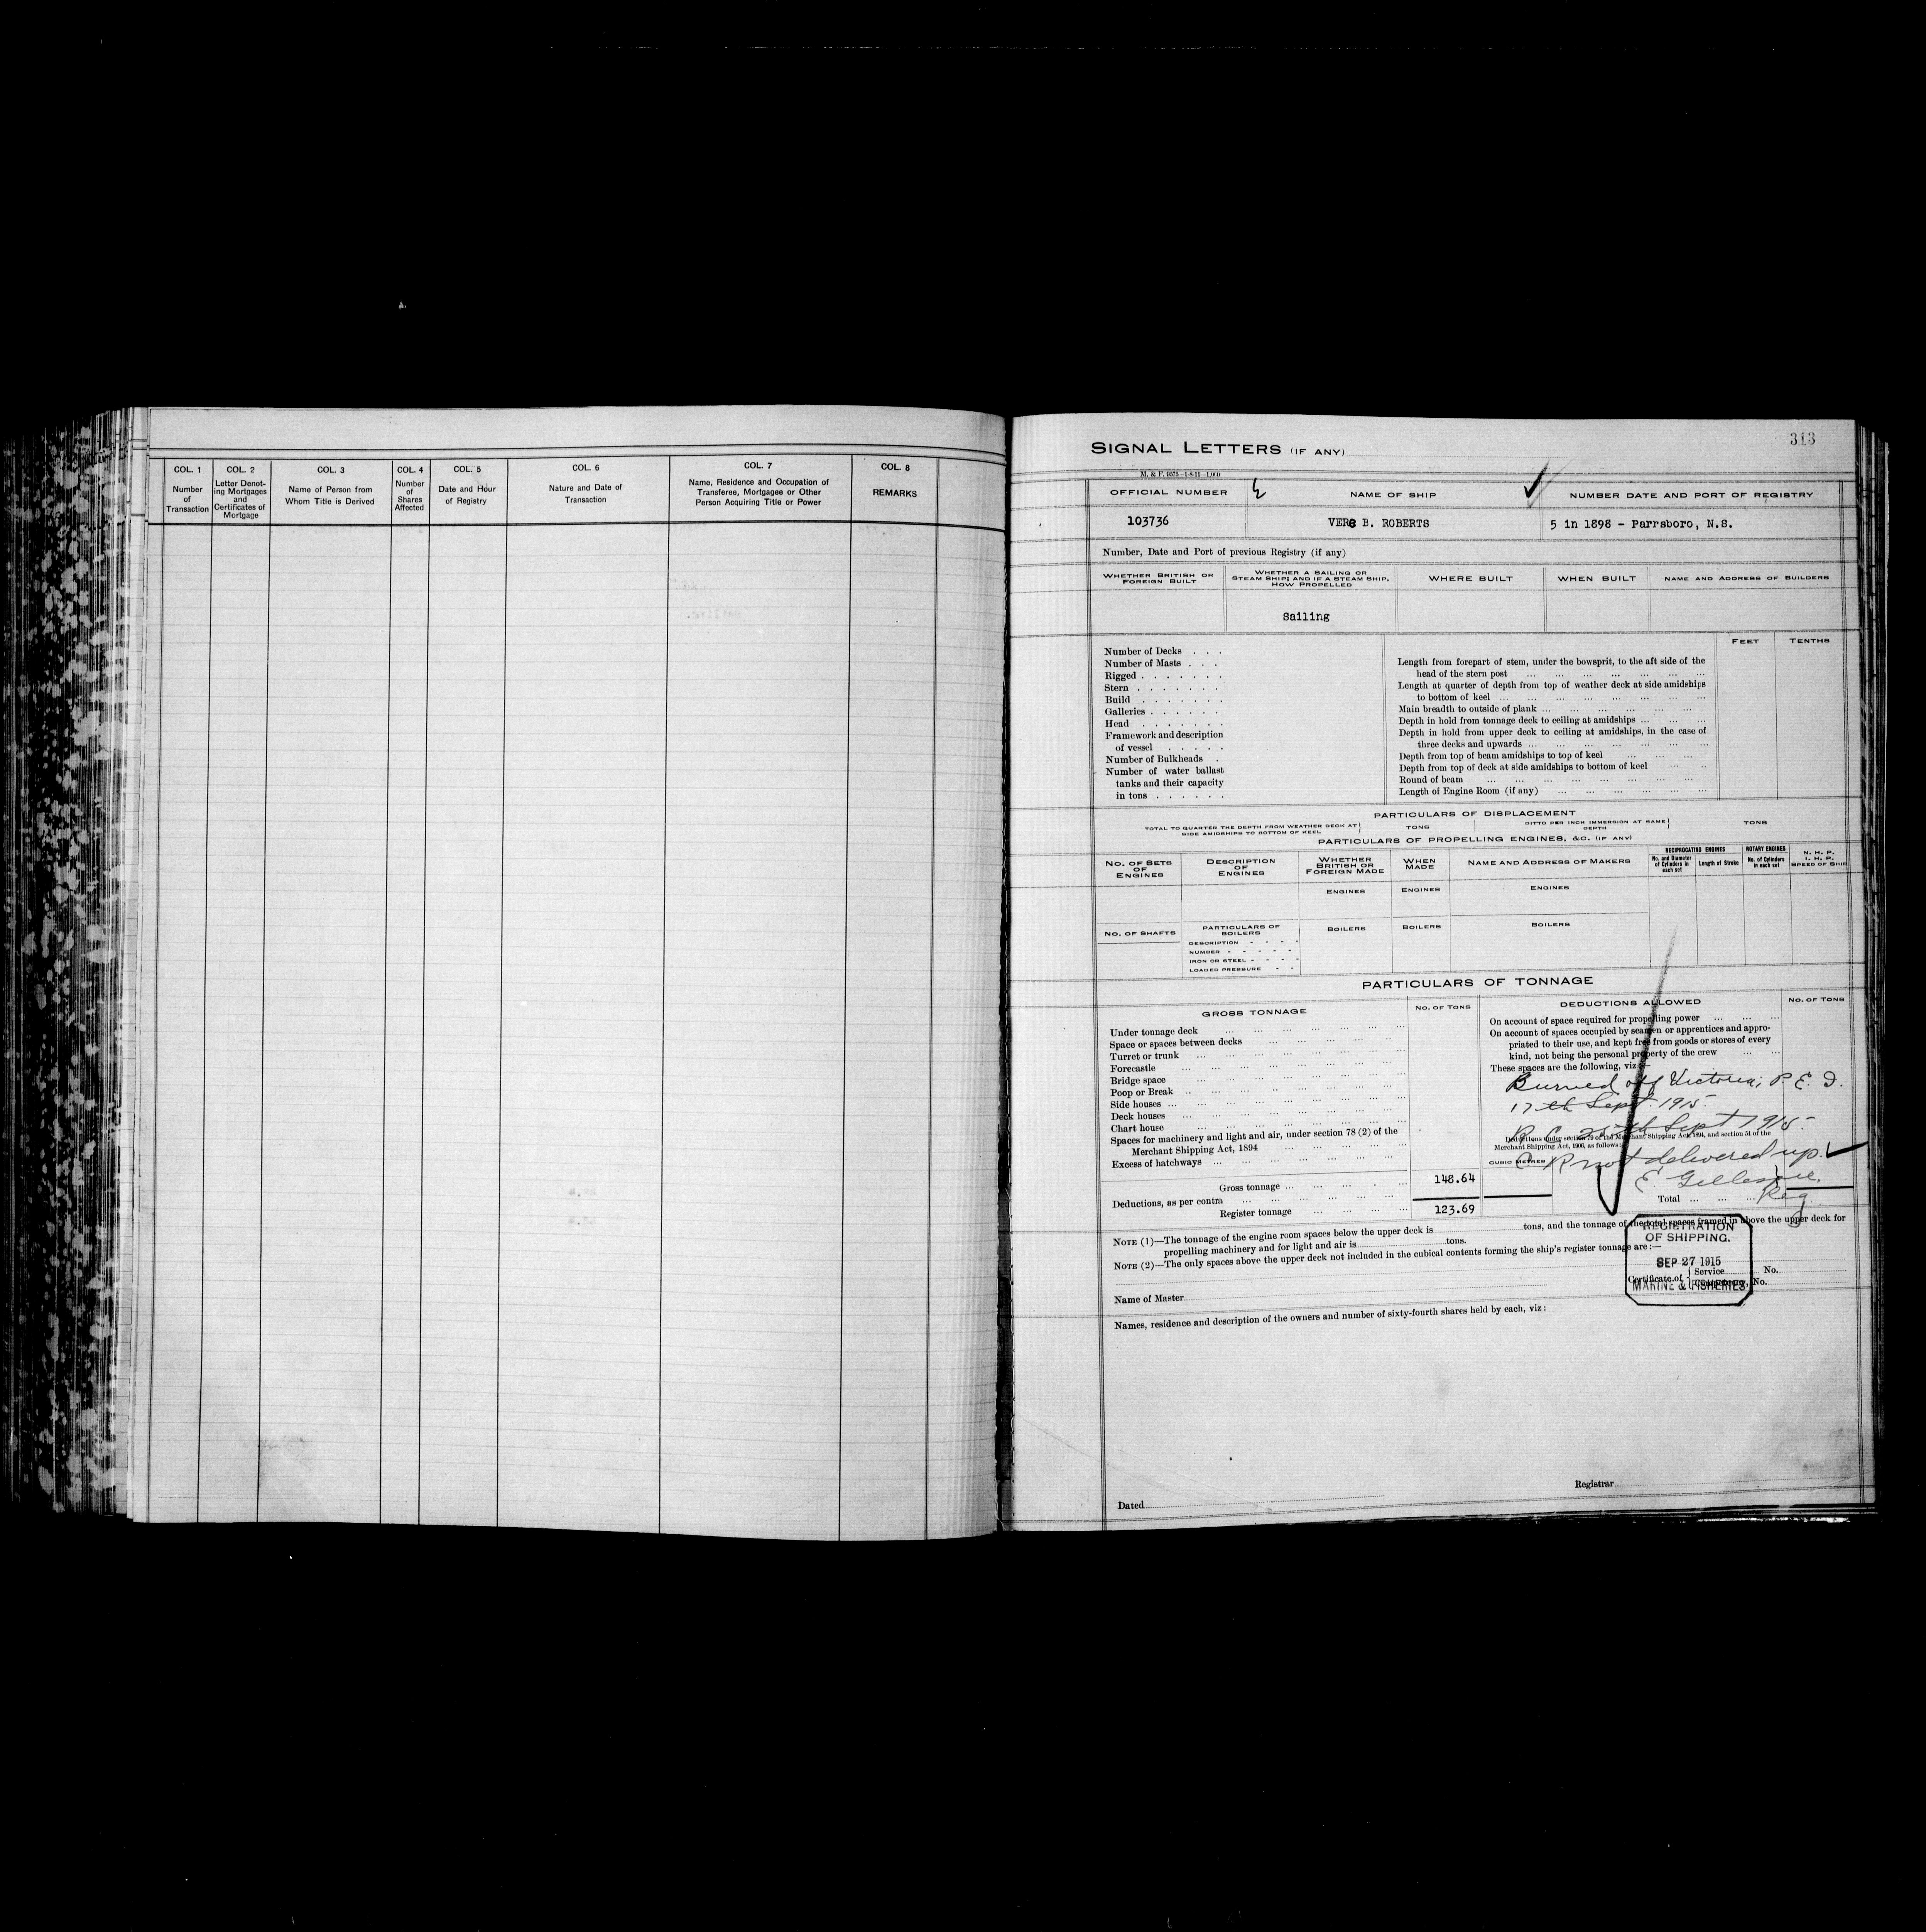 COL. 1
Number
of
Transaction
COL. 2
Letter Denot-
ing Mortgages
and
Certificates of
Mortgage
COL. 3
Name of Person from
Whom Title is Derived
COL. 4
Number
of
Shares
Affected
COL. 5
Date and Hour
of Registry
COL. 6
Nature and Date of
Transaction
COL. 7
Name, Residence and Occupation of
Transferee, Mortgagee or Other
Person Acquiring Title or Power
COL. 8
REMARKS
313
SIGNAL LETTERS (IF ANY)
M. & F. 9375-1-8-11-1,000
OFFICIAL NUMBER
NAME OF SHIP
NUMBER DATE AND PORT OF REGISTRY
103736
VERE B. ROBERTS
5 in 1898 - Parrsboro, N.S.
Number, Date and Port of previous Registry (if any)
WHETHER BRITISH OR
FOREIGN BUILT
WHETHER A SAILING OR
STEAM SHIP; AND IF A STEAM SHIP,
HOW PROPELLED
WHERE BUILT
WHEN BUILT
NAME AND ADDRESS OF BUILDERS
Sailing
FEET
TENTHS
Number of Decks
Number of Masts
Rigged
Stern
Build
Galleries
Head
Framework and description
of vessel
Number of Bulkheads
Number of water ballast
tanks and their capacity
in tons
Length from forepart of stem, under the bowsprit, to the aft side of the
head of the stern post
Length at quarter of depth from top of weather deck at side amidships
to bottom of keel
Main breadth to outside of plank
Depth in hold from tonnage deck to ceiling at amidships
Depth in hold from upper deck to ceiling at amidships, in the case of
three decks and upwards
Depth from top of beam amidships to top of keel
Depth from top of deck at side amidships to bottom of keel
Round of beam
Length of Engine Room (if any)
PARTICULARS OF DISPLACEMENT
TOTAL TO QUARTER THE DEPTH FROM WEATHER DECK AT
SIDE AMIDSHIPS TO BOTTOM OF KEEL
TONS
DITTO PER INCH IMMERSION AT SAME
DEPTH
TONS
PARTICULARS OF PROPELLING ENGINES, &C. (IF ANY)
NO. OF SETS
OF
ENGINES
DESCRIPTION
OF
ENGINES
WHETHER
BRITISH OR
FOREIGN MADE
WHEN
MADE
NAME AND ADDRESS OF MAKERS
RECIPROCATING ENGINES
No. and Diameter
of Cylinders in
each set
Length of Stroke
ROTARY ENGINES
No. of Cylinders
in each set
N. H. P.
I. H. P.
SPEED OF SHIP
ENGINES
ENGINES
ENGINES
NO. OF SHAFTS
PARTICULARS OF
BOILERS
BOILERS
BOILERS
BOILERS
DESCRIPTION
NUMBER
IRON OR STEEL
LOADED PRESSURE
PARTICULARS OF TONNAGE
GROSS TONNAGE
NO. OF TONS
DEDUCTIONS ALLOWED
NO. OF TONS
Under tonnage deck
Space or spaces between decks
Turret or trunk
Forecastle
Bridge space
Poop or Break
Side houses
Deck houses
Chart house
Spaces for machinery and light and air, under section 78 (2) of the
Merchant Shipping Act, 1894
Excess of hatchways
Gross tonnage
148.64
Deductions, as per contra
Register tonnage
123.69
On account of space required for propelling power
On account of spaces occupied by seamen or apprentices and appro-
priated to their use, and kept free from goods or stores of every
kind, not being the personal property of the crew
These spaces are the following, viz:—
Burned off Victoria, P. E. I.
17th Sept. 1915.
R. C. 25th Sept 1915.
Deductions under section 79 of the Merchant Shipping Act, 1894, and section 54 of the
Merchant Shipping Act, 1906, as follows:
CUBIC METRES
C. R. not delivered up.
E. Gillespie,
Reg
Total
NOTE (1)—The tonnage of the engine room spaces below the upper deck is tons, and the tonnage of the total spaces framed in above the upper deck for
propelling machinery and for light and air is tons.
NOTE (2)—The only spaces above the upper deck not included in the cubical contents forming the ship's register tonnage are:—
REGISTRATION
OF SHIPPING.
SEP 27 1915
MARINE & FISHERIES
Certificate of
Service No.
Competency, No.
Name of Master
Names, residence and description of the owners and number of sixty-fourth shares held by each, viz:
Registrar
Dated